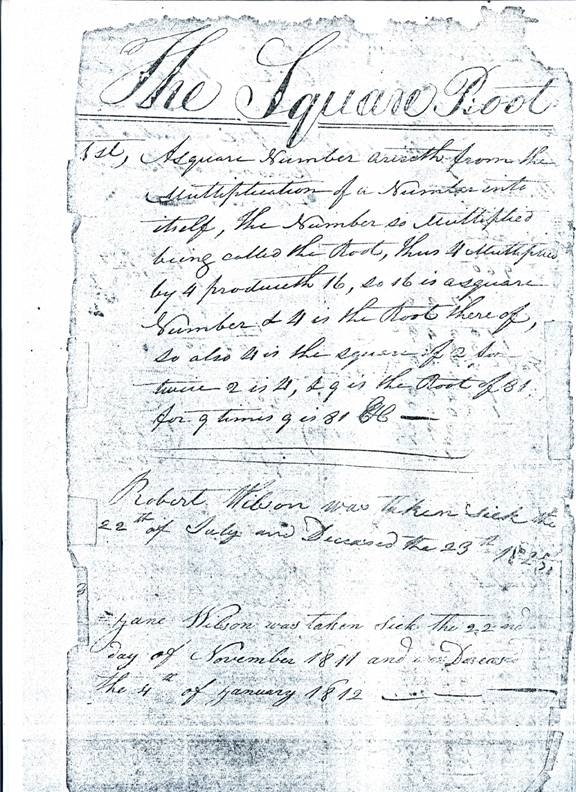 The Square Root
1st, A square Number ariseth from the
Multiplication of a Number into
itself, The Number so Multiplied
being called the Root, thus 4 Multiplied
by 4 produceth 16, so 16 is a square
Number & 4 is the Root there of,
so also 4 is the square of 2 for
twice 2 is 4, & 9 is the Root of 81
for 9 times 9 is 81 &C
Robert Wilson was taken sick the
22th of July and Deceased the 23th 1825,
Jane Wilson was taken sick the 22nd
day of November 1811 and was Deceas
the 4th of January 1812